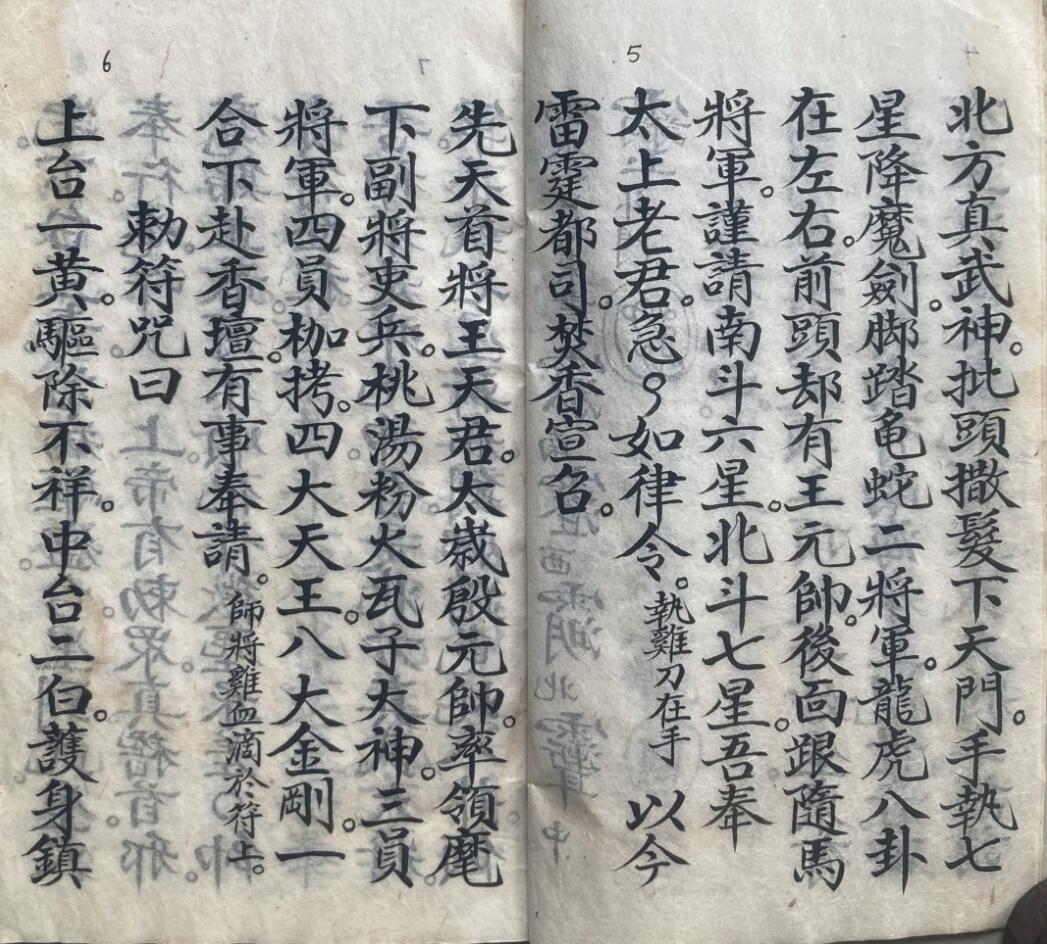 5
北方真武神。批頭撒髮下天門。手執七
星降魔劍。脚踏龟蛇二將軍。龍虎八卦
在左右。前頭却有王元帥。後面跟隨馬
將軍。謹請南斗六星。北斗七星。吾奉
太上老君。急〻如律令。執雞刀在手 以今
雷霆都司。焚香宣召。
6
先天首將王天君。太歲殷元帥。率領麾
下副將吏兵。桃湯粉火瓦子大神。三員
將軍。四員枷拷。四大天王。八大金剛。一
合下赴香壇。有事奉請。師將雞血滴於符上。
勅符咒曰
上台一黃。驅除不祥。中台二白。護身鎮